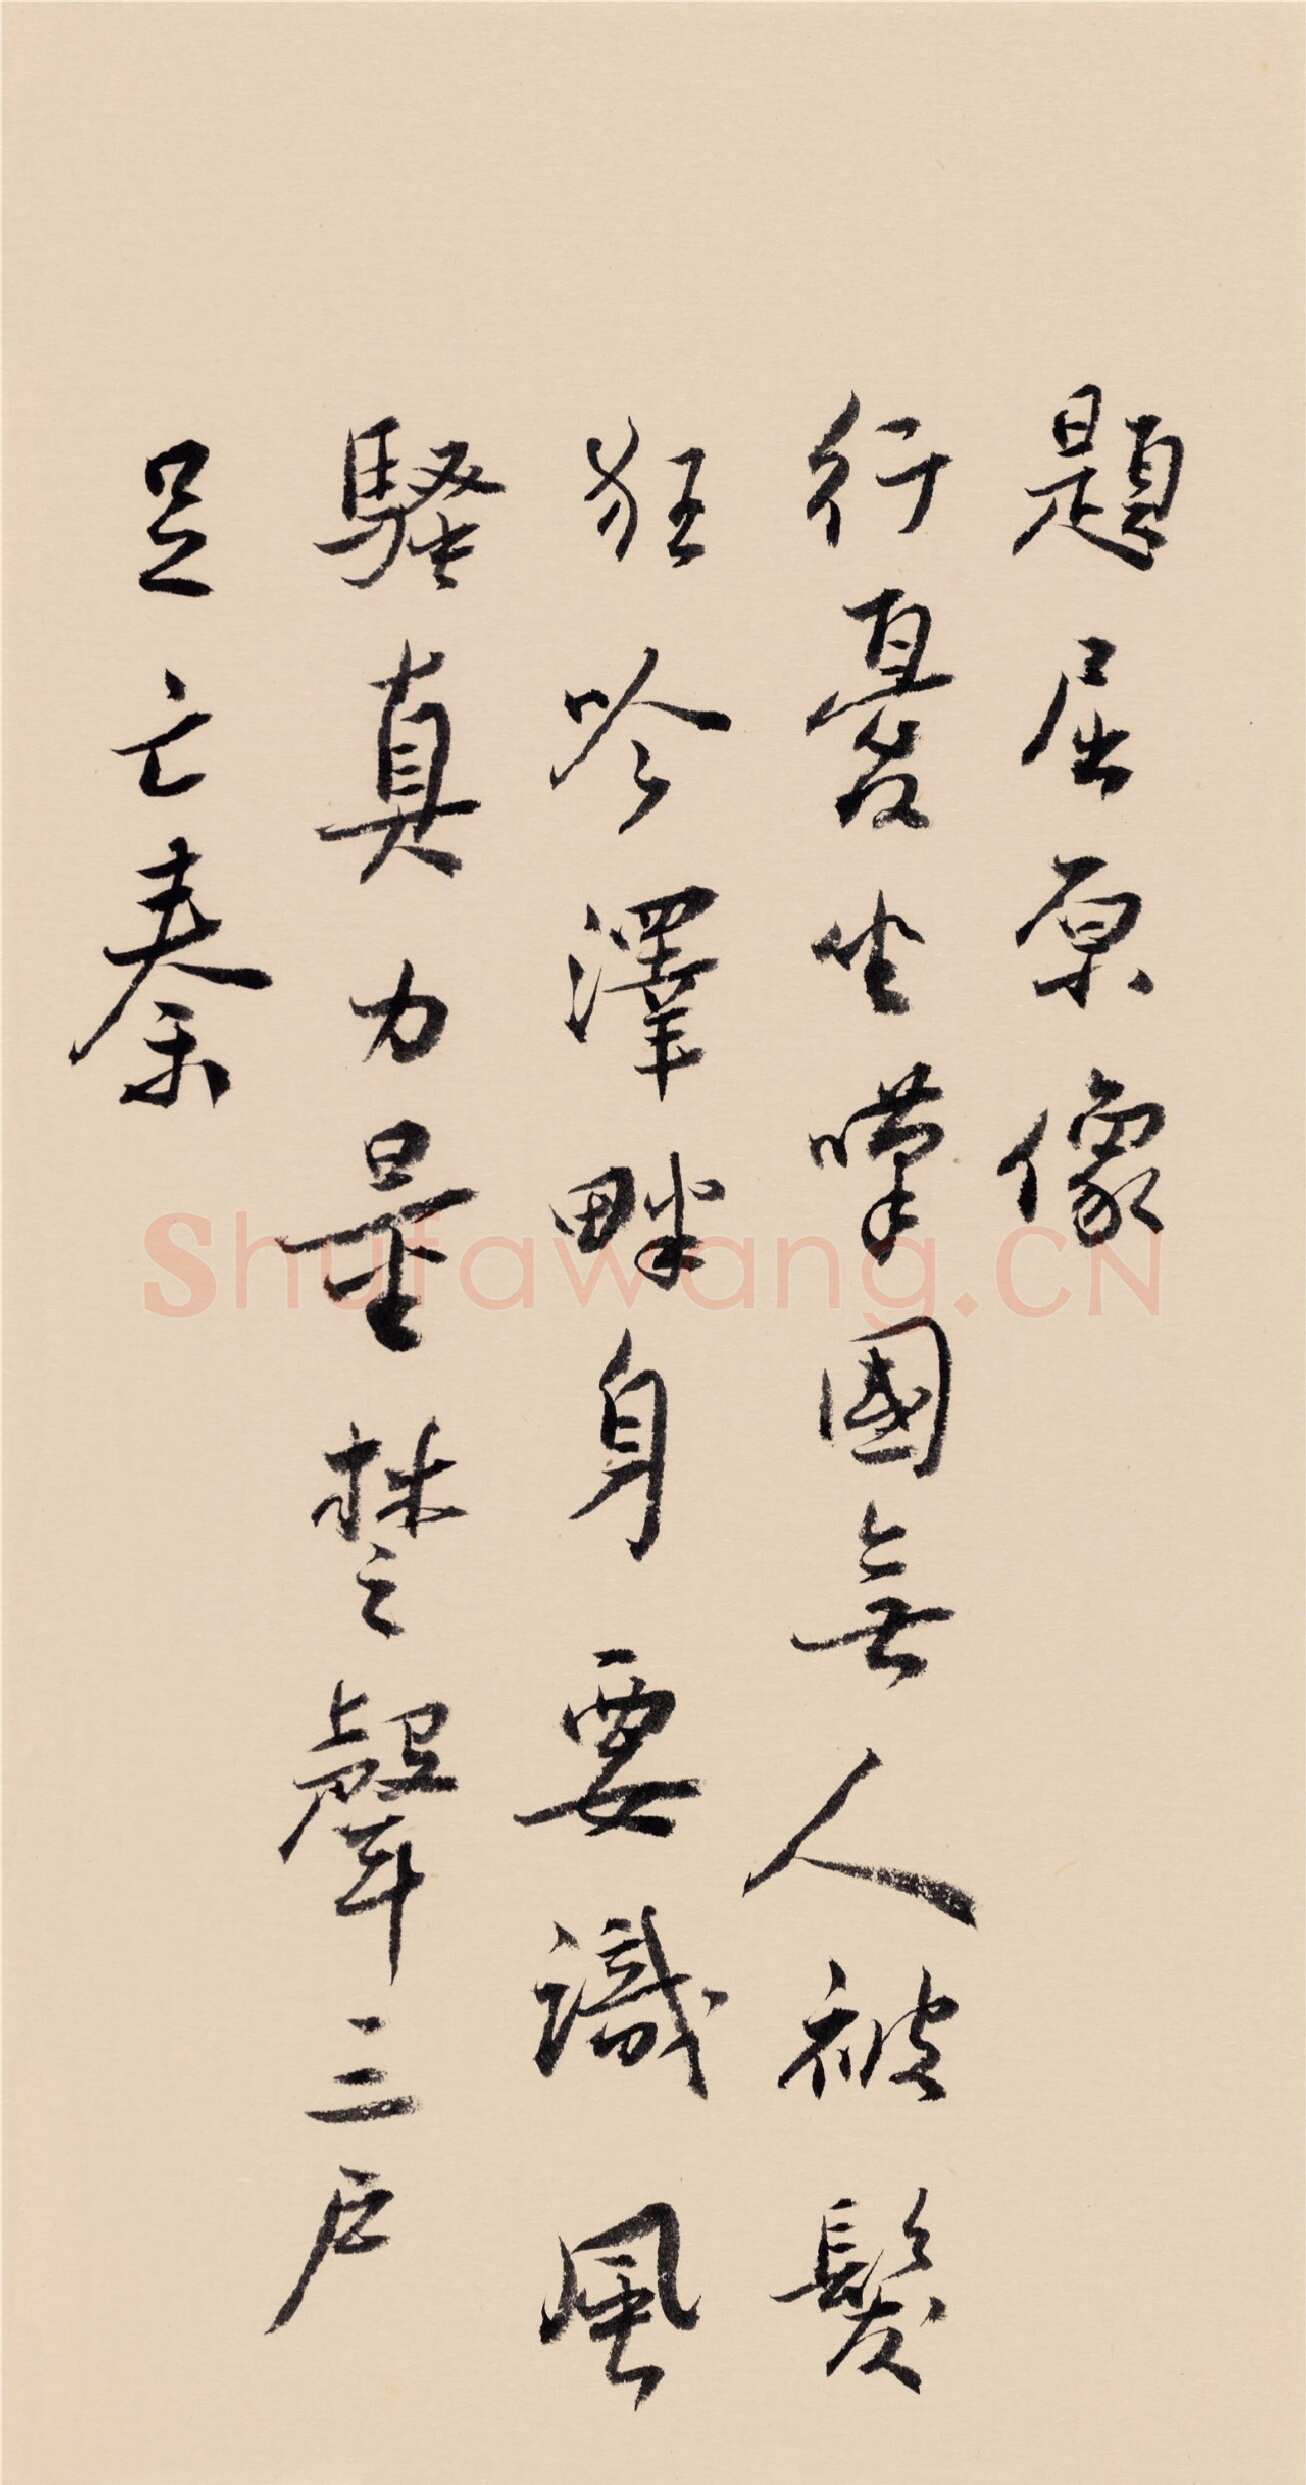 題屈原像
行憂坐嘆國無人被髮
狂吟澤畔身要識風
騷真力量楚聲三戶
足亡秦
Shufawang.CN